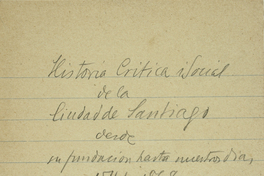 Historia Critica i Social
de la
Ciudad de Santiago
desde
su fundacion hasta nuestros dias,